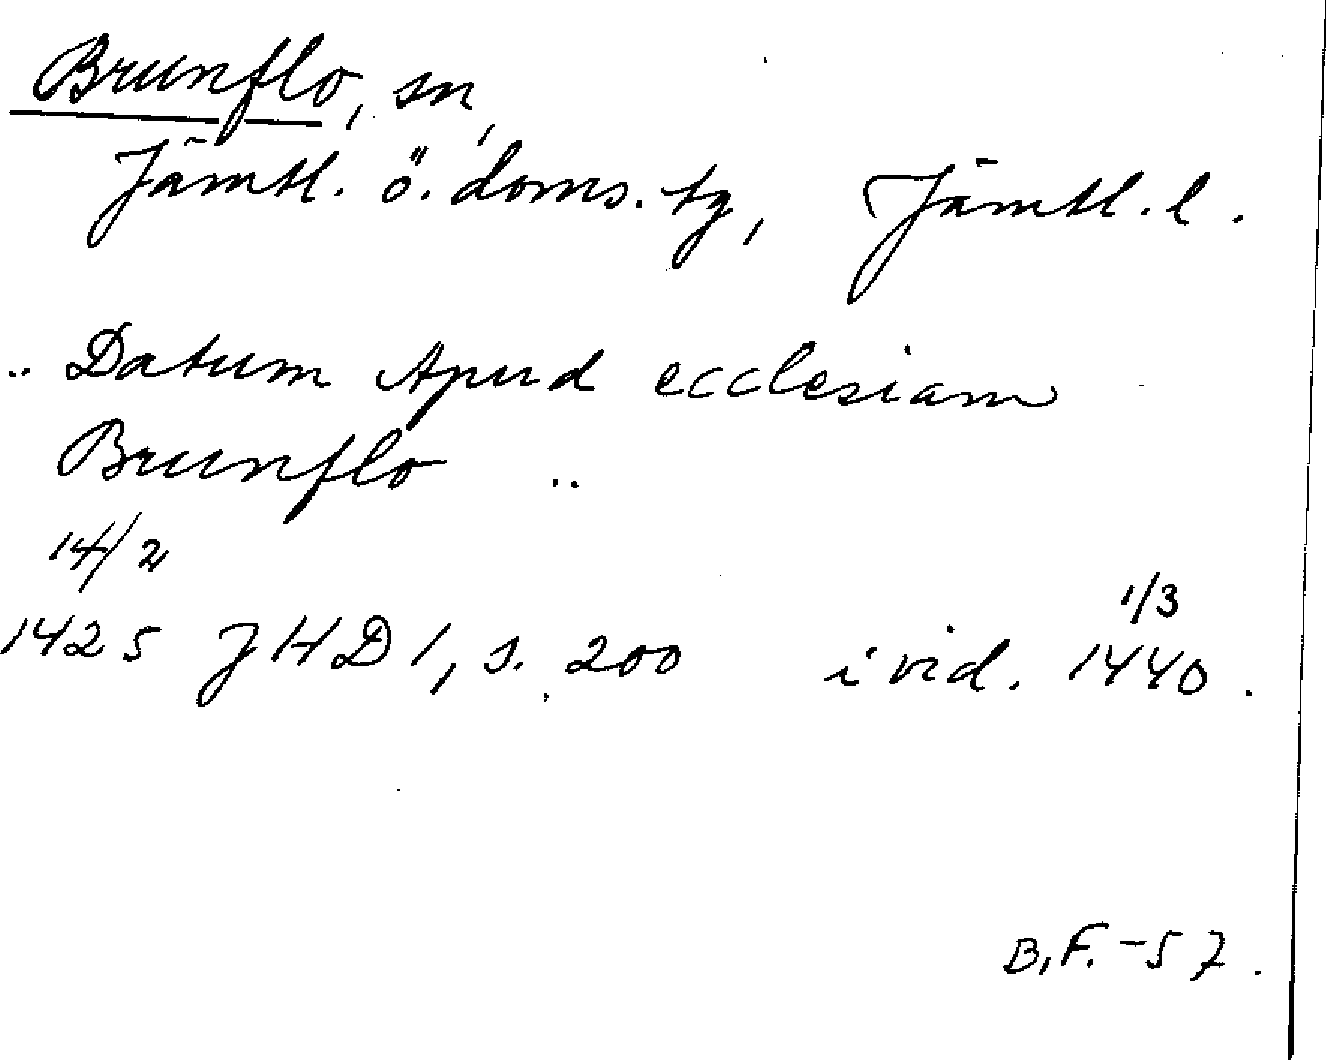 Brunflo, sn,
Jämtl. ö. doms. tg, Jämtl. l.
.. Datum Apud ecclesiam
Brunflo ..
14/2
1/3
1425 JHD 1, s. 200 i vid. 1440.
B.F. -57.